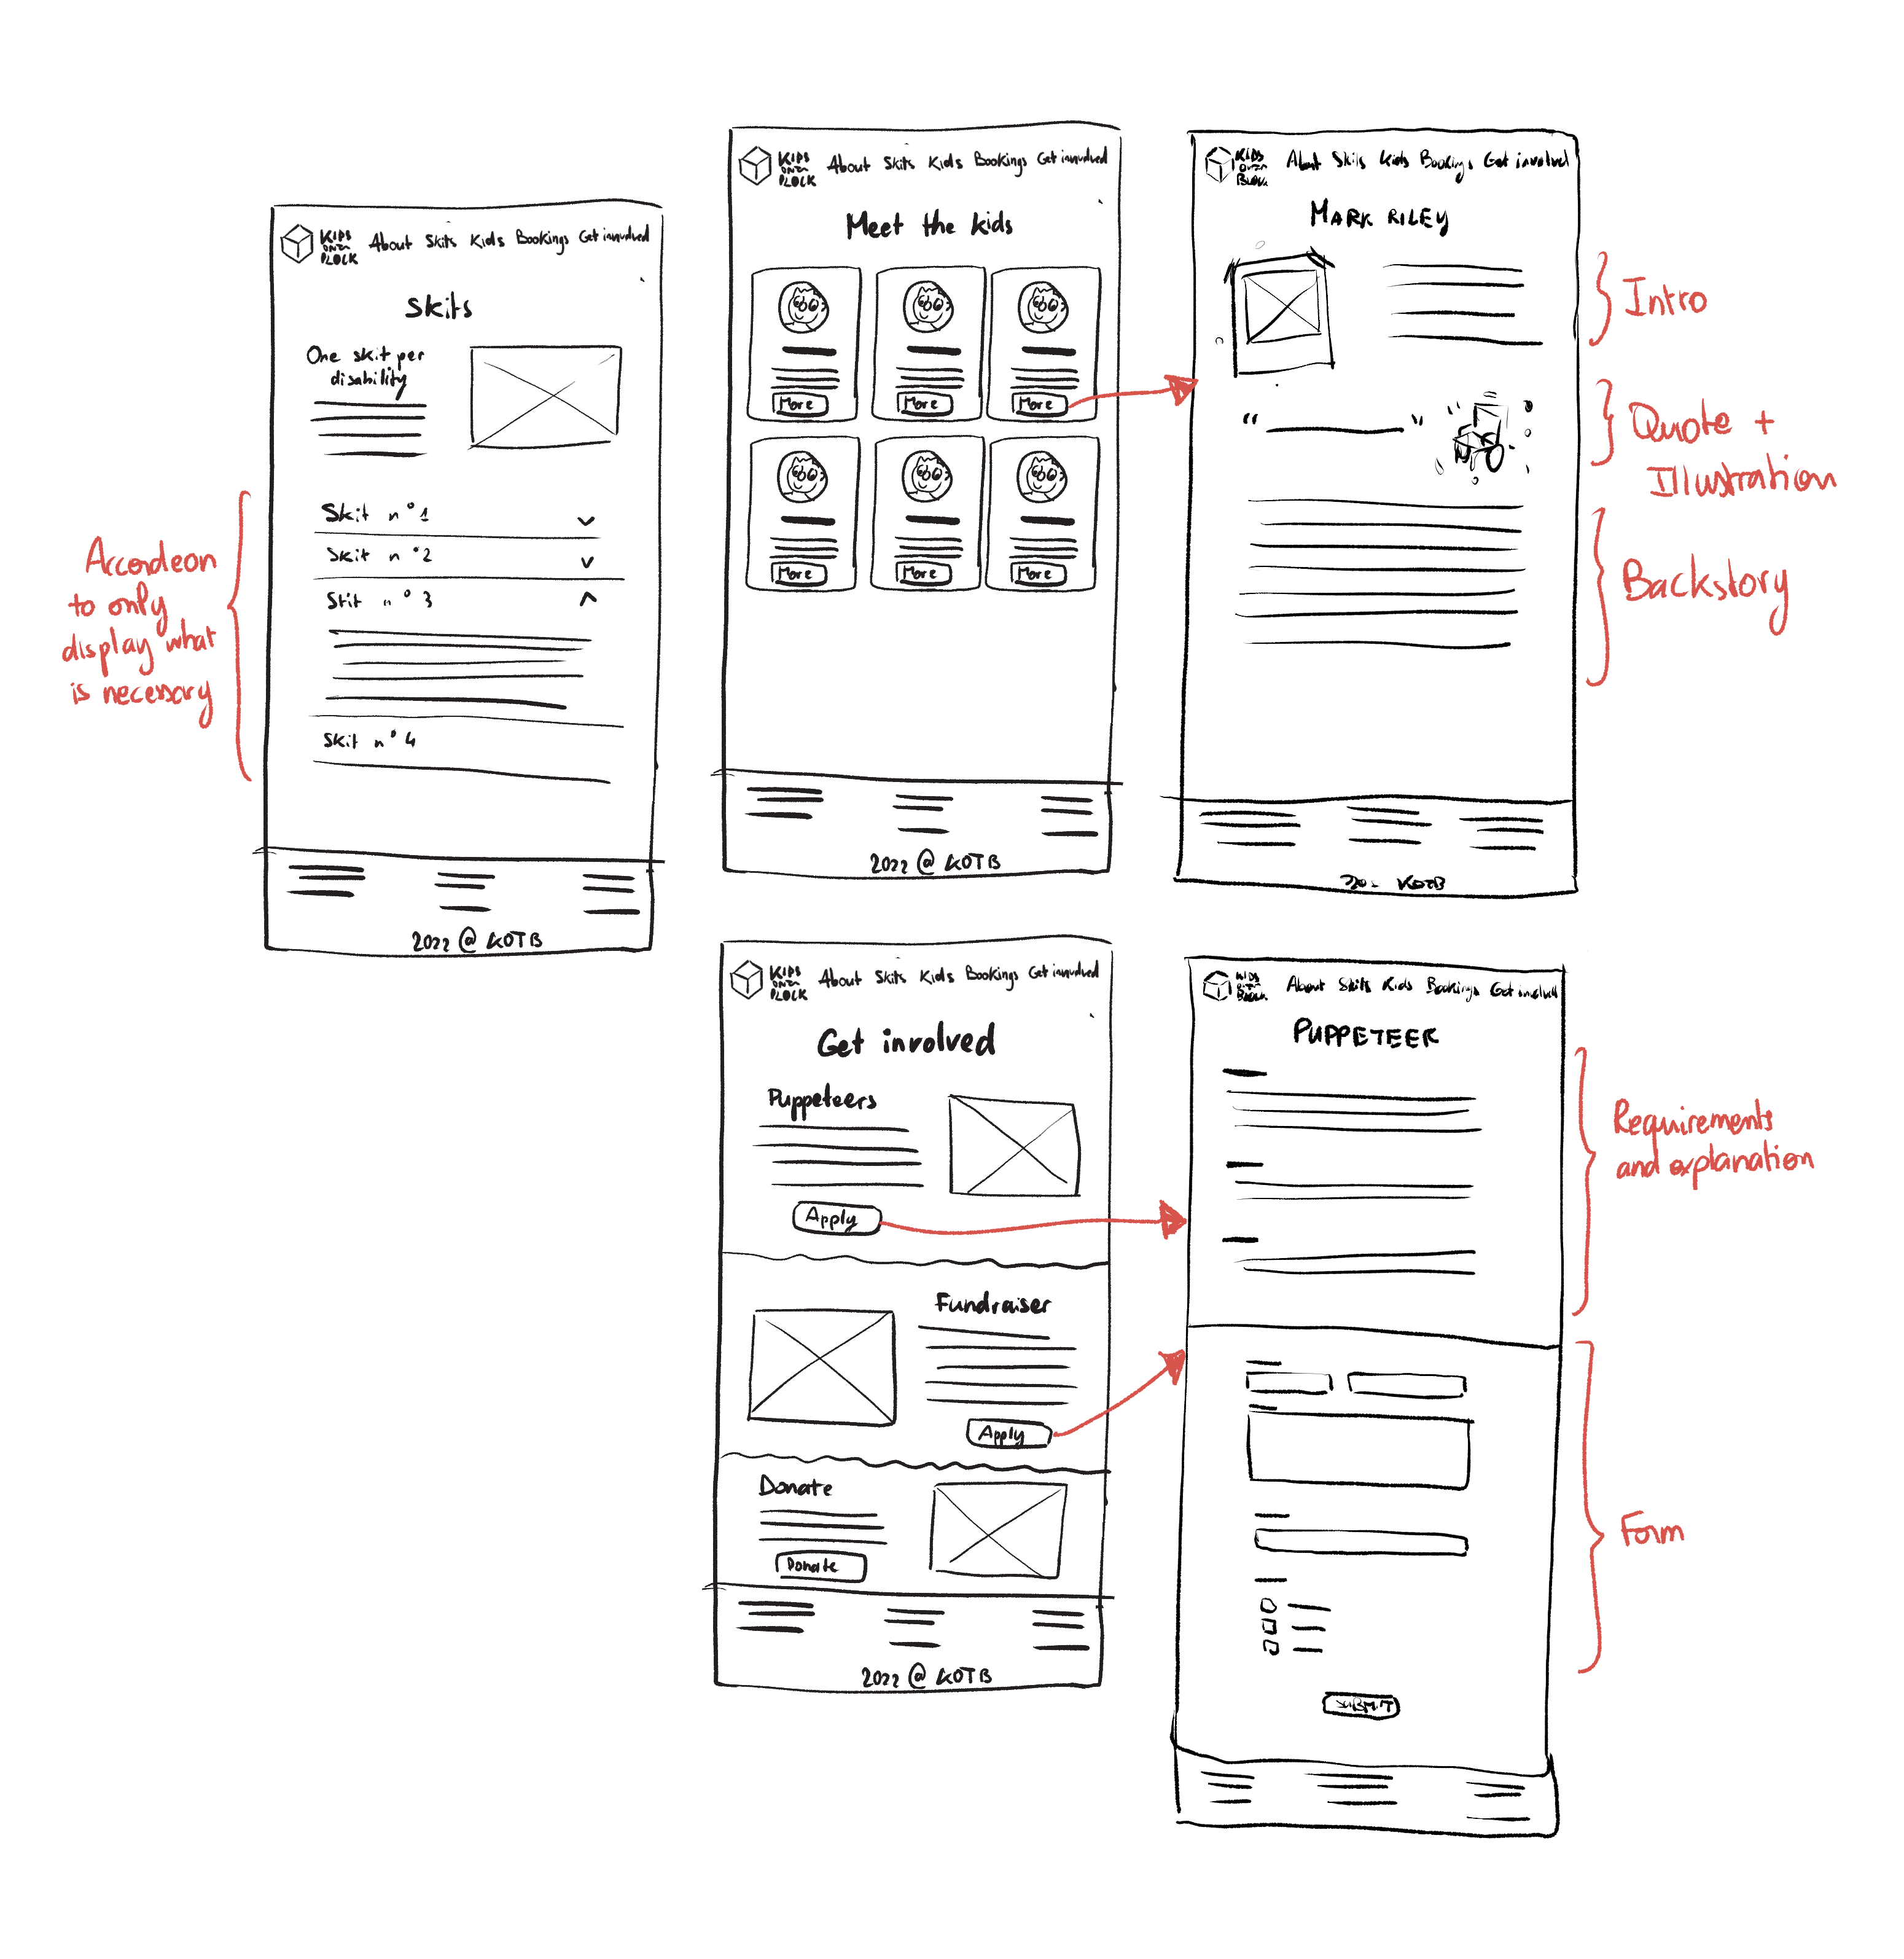 KIDS
ON THE
BLOCK
About Skits Kids Bookings Get involved
Skits
One skit per
disability
Skit n°1
Skit n°2
Skit n°3
Skit n°4
2022 @ KOTB
Accordeon
to only
display what
is necessary
KIDS
ON THE
BLOCK
About Skits Kids Bookings Get involved
Meet the kids
More More More
More More More
2022 @ KOTB
KIDS
ON THE
BLOCK
About Skits Kids Bookings Get involved
MARK RILEY
“ ”
KOTB
Intro
Quote +
Illustration
Backstory
KIDS
ON THE
BLOCK
About Skits Kids Bookings Get involved
Get involved
Puppeteers
Apply
Fundraiser
Apply
Donate
Donate
2022 @ KOTB
KIDS
ON THE
BLOCK
About Skits Kids Bookings Get involved
PUPPETEER
SUBMIT
Requirements
and explanation
Form